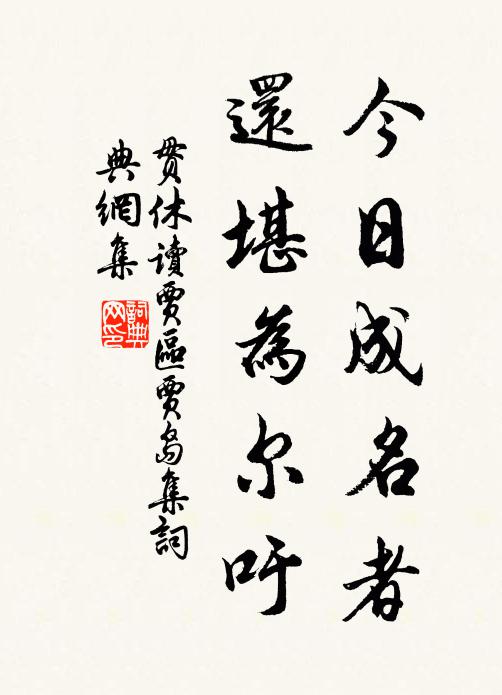 今日成名者
還堪為尔吁
貫休讀賈區賈島集詞
典網集
詞典網印